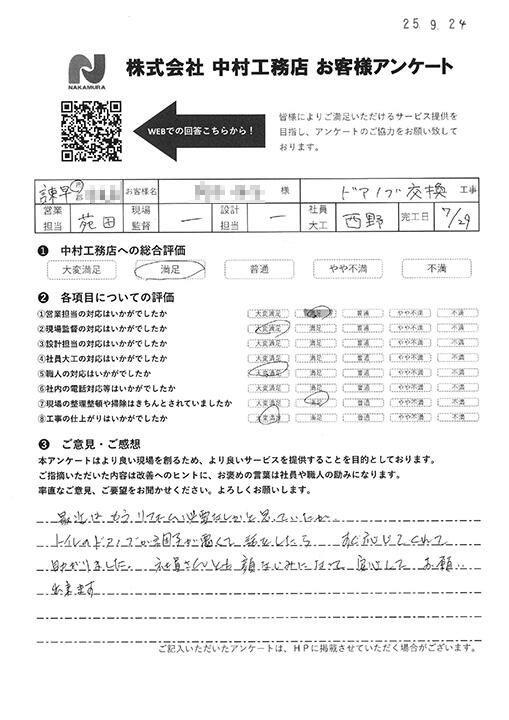 25.9.24
NAKAMURA
株式会社 中村工務店 お客様アンケート
WEBでの回答こちらから！
皆様によりご満足いただけるサービス提供を
目指し、アンケートのご協力をお願い致して
おります。
諫早 市 郡 お客様名 様 ドアノブ交換 工事
営業担当 苑田 現場監督 ー 設計担当 ー 社員大工 西野 完工日 7/29
❶ 中村工務店への総合評価
大変満足 満足 普通 やや不満 不満
❷ 各項目についての評価
①営業担当の対応はいかがでしたか 大変満足 満足 普通 やや不満 不満
②現場監督の対応はいかがでしたか 大変満足 満足 普通 やや不満 不満
③設計担当の対応はいかがでしたか 大変満足 満足 普通 やや不満 不満
④社員大工の対応はいかがでしたか 大変満足 満足 普通 やや不満 不満
⑤職人の対応はいかがでしたか 大変満足 満足 普通 やや不満 不満
⑥社内の電話対応等はいかがでしたか 大変満足 満足 普通 やや不満 不満
⑦現場の整理整頓や掃除はきちんとされていましたか 大変満足 満足 普通 やや不満 不満
⑧工事の仕上がりはいかがでしたか 大変満足 満足 普通 やや不満 不満
❸ ご意見・ご感想
本アンケートはより良い現場を創るため、より良いサービスを提供することを目的としております。
ご指摘いただいた内容は改善へのヒントに、お褒めの言葉は社員や職人の励みになります。
率直なご意見、ご要望をお聞かせください。よろしくお願いします。
最近は もうリフォーム必要なしかと思っていたが
トイレのドアノブが調子が悪くて 話をしたら すぐ対応してくれて
助かりました. 社員さんとも 顔なじみになって 安心して お願い
出来ます
ご記入いただいたアンケートは、HPに掲載させていただく場合がございます。